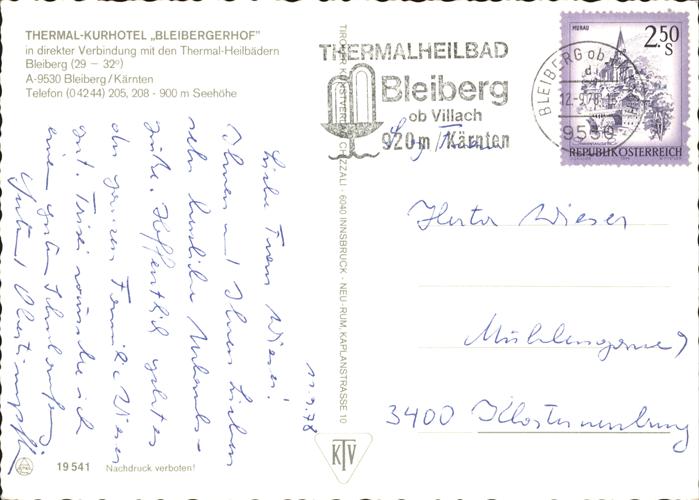 THERMAL-KURHOTEL „BLEIBERGERHOF"
in direkter Verbindung mit den Thermal-Heilbädern
Bleiberg (29 – 32°)
A-9530 Bleiberg/Kärnten
Telefon (0 42 44) 205, 208 - 900 m Seehöhe
THERMALHEILBAD
Bleiberg
ob Villach
920 m Kärnten
BLEIBERG ob
12.-9.78
9530
MURAU
2.50
S
REPUBLIK ÖSTERREICH
TIROLER KUNSTVERLAG CHIZZALI · 6040 INNSBRUCK - NEU-RUM, KAPLANSTRASSE 10
11.9.78
Liebe Frau Wieser!
Ihnen und Ihren Lieben
sehr herzliche Urlaubs-
grüße. Hoffentlich geht es
der ganzen Familie Wieser
gut. Trixi wünsche ich
einen guten Schulanfang
Frau
Herta Wieser
Mühlengasse 9
3400 Klosterneuburg
KTV
19 541 Nachdruck verboten!